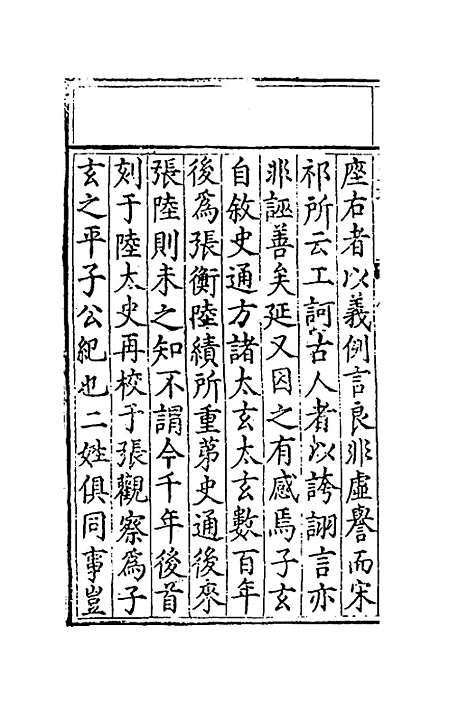 座右者以義例言良非虛譽而宋
祁所云工訶古人者以誇詡言亦
非誣善矣延又因之有感焉子玄
自敘史通方諸太玄太玄數百年
後爲張衡陸績所重苐史通後來
張陸則未之知不謂今千年後首
刻于陸太史再校于張觀察爲子
玄之平子公紀也二姓俱同事豈